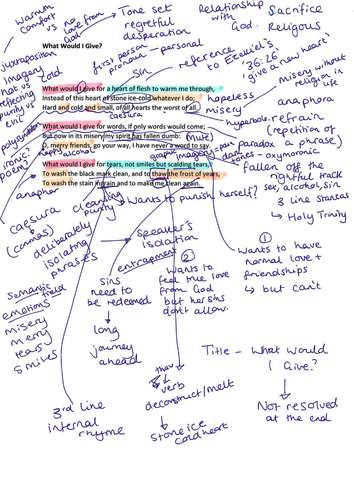 Warmth comfort vs no love from God
Tone set
regretful
desperation
Relationship with God.
Sacrifice
Religious
What Would I Give?
first person pronoun - personal
juxtaposition
Imagery
hot vs cold
reflecting purity vs evil
Sin
reference to Ezekiel's
'36:26
'give a new heart'
What would I give for a heart of flesh to warm me through,
Instead of this heart of stone ice-cold whatever I do;
Hard and cold and small, of all hearts the worst of all.
hopeless
misery
misery without religion in life
anaphora
caesura
hyperbole
refrain
(repetition of a phrase)
What would I give for words, if only words would come;
But now in its misery my spirit has fallen dumb:
O, merry friends, go your way, I have never a word to say.
(mute)
paradox
oxymoronic
polysyndeton
ironic
poem
happy
alcohol
graphic imagery = pain
What would I give for tears, not smiles but scalding tears,
To wash the black mark clean, and to thaw the frost of years,
To wash the stain ingrain and to make me clean again.
fallen off the rightful track
sex, alcohol, sin
3 line stanzas
↳ Holy Trinity
anaphora
caesura
(commas)
deliberately isolating phrases
cleaning
purity
Wants to punish herself?
Speaker's isolation
entrapment
① Wants to have normal love + friendships
↳ but can't
② Wants to feel true love from God but her sins don't allow.
semantic field
emotions
misery
merry
tears
smiles
Sins need to be redeemed
↓
long journey ahead
thaw
↓
verb
deconstruct/melt
↓
stone ice cold heart
3rd line
internal rhyme
Title - What would I Give?
↓
Not resolved at the end